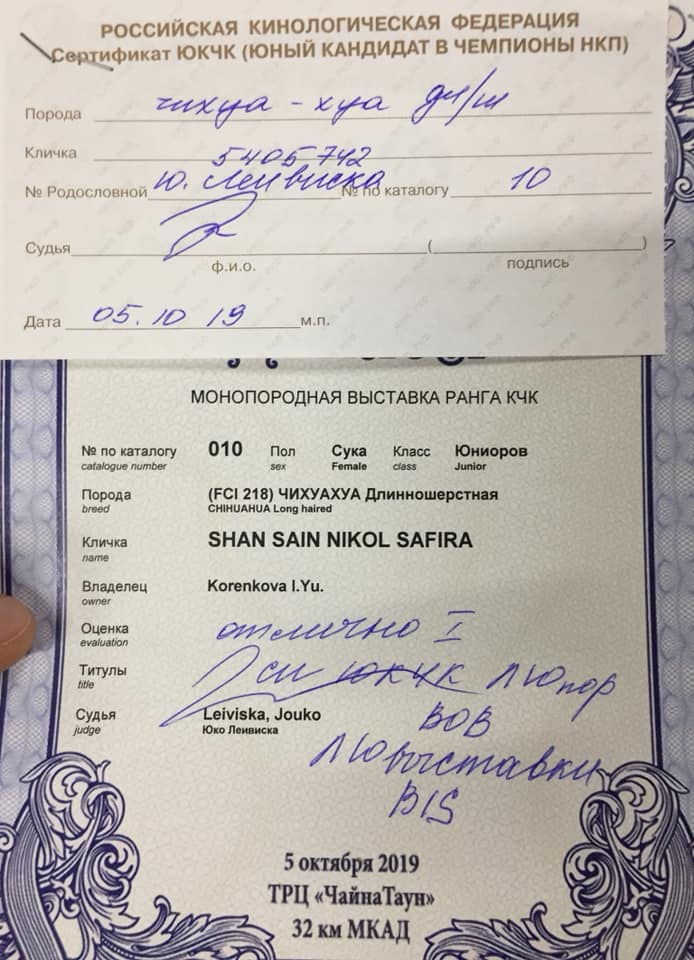 РОССИЙСКАЯ КИНОЛОГИЧЕСКАЯ ФЕДЕРАЦИЯ
Сертификат ЮКЧК (ЮНЫЙ КАНДИДАТ В ЧЕМПИОНЫ НКП)
Порода чихуа-хуа дл/ш
Кличка
5405742
№ Родословной Ю. Леивиска № по каталогу 10
Судья ( )
ф.и.о. подпись
Дата 05.10 19 м.п.
МОНОПОРОДНАЯ ВЫСТАВКА РАНГА КЧК
№ по каталогу 010 Пол Сука Класс Юниоров
catalogue number sex Female class Junior
Порода (FCI 218) ЧИХУАХУА Длинношерстная
breed CHIHUAHUA Long haired
Кличка SHAN SAIN NIKOL SAFIRA
name
Владелец Korenkova I.Yu.
owner
Оценка отлично I
evaluation
Титулы СП ЮКЧК ЛЮпор
title
Судья Leiviska, Jouko BOB
judge Юко Леивиска
ЛЮвыставки
BIS
5 октября 2019
ТРЦ «ЧайнаТаун»
32 км МКАД